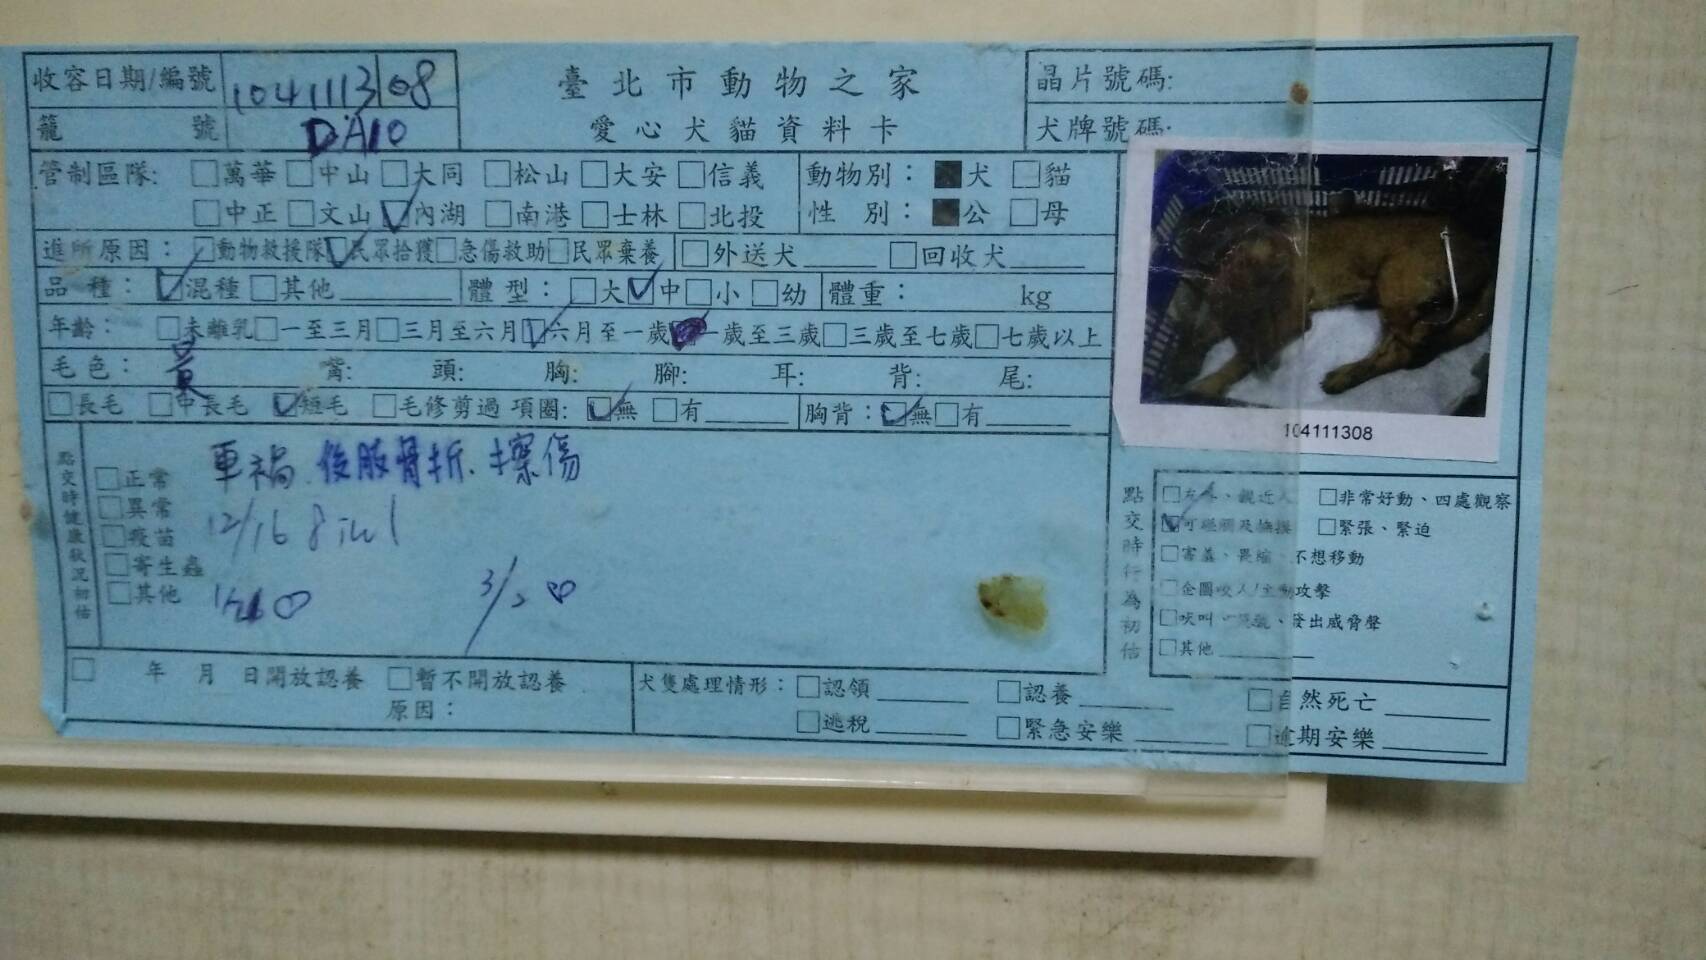 收容日期/編號 1041113 08
臺北市動物之家
晶片號碼:
籠號 DA10
愛心犬貓資料卡
犬牌號碼:
管制區隊: □萬華 □中山 □大同 □松山 □大安 □信義
動物別: ■犬 □貓
□中正 □文山 ☑內湖 □南港 □士林 □北投
性別: ■公 □母
進所原因: □動物救援隊 ☑民眾拾獲 □急傷救助 □民眾棄養 □外送犬 □回收犬
品種: ☑混種 □其他 體型: □大 ☑中 □小 □幼 體重: kg
年齡: □未離乳 □一至三月 □三月至六月 ☑六月至一歲 ■一歲至三歲 □三歲至七歲 □七歲以上
毛色: 黃 嘴: 頭: 胸: 腳: 耳: 背: 尾:
□長毛 □中長毛 ☑短毛 □毛修剪過 項圈: ☑無 □有 胸背: ☑無 □有
104111308
點交時健康狀況初估
□正常
□異常
□疫苗
□寄生蟲
□其他
車禍 後肢骨折、擦傷
12/16
3/2
點交時行為初估
□友善、親近人 □非常好動、四處觀察
☑可碰觸及撫摸 □緊張、緊迫
□害羞、畏縮、不想移動
□企圖咬人/主動攻擊
□吠叫、低吼、發出威脅聲
□其他
□ 年 月 日開放認養 □暫不開放認養
原因:
犬隻處理情形: □認領 □認養 □自然死亡
□逃稅 □緊急安樂 □逾期安樂